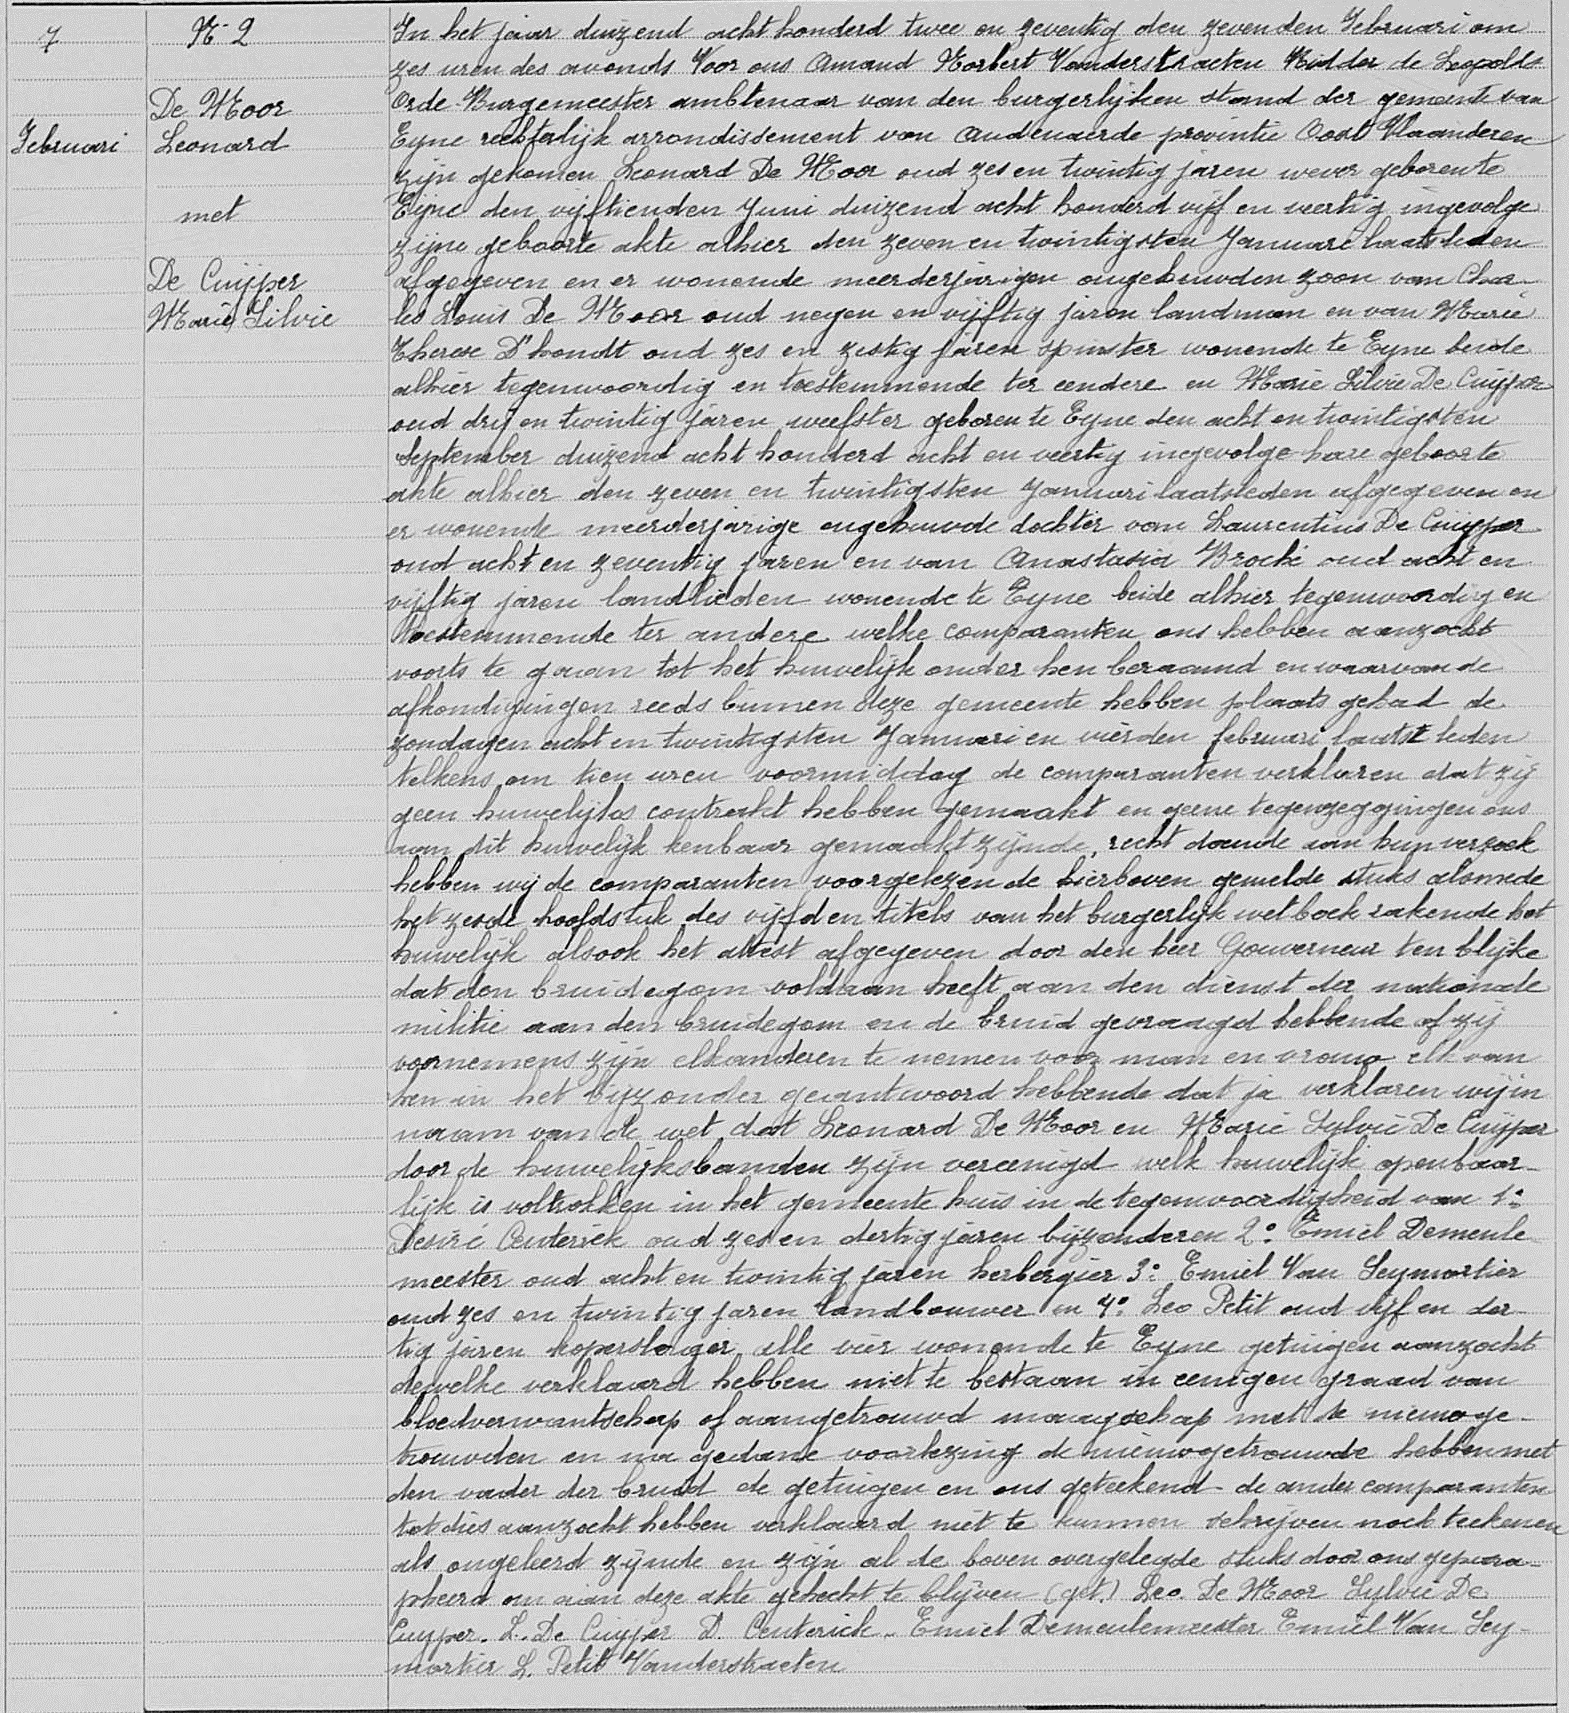 7
Februari
N° 2
De Moor
Leonard
met
De Cuijper
Marie Silvie
In het jaar duizend acht honderd twee en zeventig den zevenden Februari om
zes uren des avonds Voor ons Amand Norbert Vanderstraeten Ridder de Leopolds
Orde Burgemeester ambtenaar van den burgerlijken stand der gemeente van
Eyne rechterlijk arrondissement van Audenaerde provintie Oost Vlaanderen
zijn gekomen Leonard De Moor oud zes en twintig jaren wever geboren te
Eyne den vijftienden Juni duizend acht honderd vijf en veertig ingevolge
zijne geboorte akte alhier den zeven en twintigsten Januari laatstleden
afgegeven en er wonende meerderjarigen ongehuwden zoon van Char-
les Louis De Moor oud negen en vijftig jaren landman en van Marie
Therese D'hondt oud zes en zestig jaren spinster wonende te Eyne beide
alhier tegenwoordig en toestemmende ter eendere en Marie Silvie De Cuijper
oud drij en twintig jaren weefster geboren te Eyne den acht en twintigsten
September duizend acht honderd acht en veertig ingevolge hare geboorte
akte alhier den zeven en twintigsten Januari laatsleden afgegeven en
er wonende meerderjarige ongehuwde dochter van Laurentius De Cuijper
oud acht en zeventig jaren en van Anastasia Brocki oud acht en
vijftig jaren landlieden wonende te Eyne beide alhier tegenwoordig en
toestemmende ter andere welke comparanten ons hebben aanzocht
voorts te gaan tot het huwelijk onder hen beraamd en waarvan de
afkondigingen reeds binnen deze gemeente hebben plaats gehad de
zondagen acht en twintigsten Januari en vierden februari laatst leden
telkens om tien uren voormiddag de comparanten verklaren dat zij
geen huwelijks contrakt hebben gemaakt en geene tegenzeggingen ons
aan dit huwelijk kenbaar gemaakt zijnde, recht doende aan hun verzoek
hebben wij de comparanten voorgelezen de hierboven gemelde stuks alsmede
het zesde hoofdstuk des vijfden titels van het burgerlijk wetboek rakende het
huwelijk alsook het attest afgegeven door den heer Gouverneur ten blijke
dat den bruidegom voldaan heeft aan den dienst der nationale
militie aan den bruidegom en de bruid gevraagd hebbende of zij
voornemens zijn elkanderen te nemen voor man en vrouw elk van
hen in het bijzonder geantwoord hebbende dat ja verklaren wij in
naam van de wet dat Leonard De Moor en Marie Sylvie De Cuijper
door de huwelijksbanden zijn vereenigd welk huwelijk openbaar-
lijk is voltrokken in het gemeente huis in de tegenwoordigheid van 1°
Desiré Ceuterick oud zes en dertig jaren bijzonderen 2° Emiel Demeule
meester oud acht en twintig jaren herbergier 3° Emiel Van Seymortier
oud zes en twintig jaren landbouwer en 4° Leo Petit oud vijf en der
tig jaren koperslager alle vier wonende te Eyne getuigen aanzocht
dewelke verklaard hebben niet te bestaan in eenigen graad van
bloedverwantschap of aangetrouwd maagschap met de nieuwge-
trouwden en na gedane voorlezing de nieuwgetrouwde hebben met
den vader der bruid de getuigen en ons geteekend de ander comparanten
tot dies aanzocht hebben verklaard niet te kunnen schrijven noch teekenen
als ongeleerd zijnde en zijn al de boven overgelegde stuks door ons gepara-
pheerd om aan deze akte gehecht te blijven (get.) Leo. De Moor Sylvie De
Cuyper. L. De Cuijper D. Ceuterick. Emiel Demeulemeester Emiel Van Sey-
mortier L. Petit Vanderstraeten